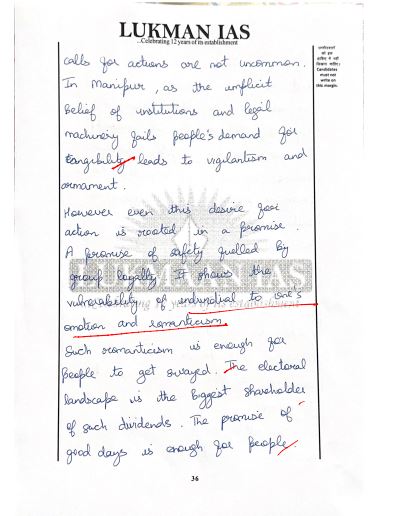 LUKMAN IAS
...Celebrating 12 years of its establishment
उम्मीदवारों
को इस
हाशिए में नहीं
लिखना चाहिए।
Candidates
must not
write on
this margin.
calls for actions are not uncommon.
In Manipur, as the implicit
belief of institutions and legal
machinery fails people's demand for
tangibility leads to vigilantism and
armament.
However even this desire for
action is rooted in a promise.
A promise of safety fuelled by
group loyalty. It shows the
vulnerability of individual to one's
emotion and romanticism.
Such romanticism is enough for
people to get swayed. The electoral
landscape is the biggest shareholder
of such dividends. The promise of
good days is enough for people.
36